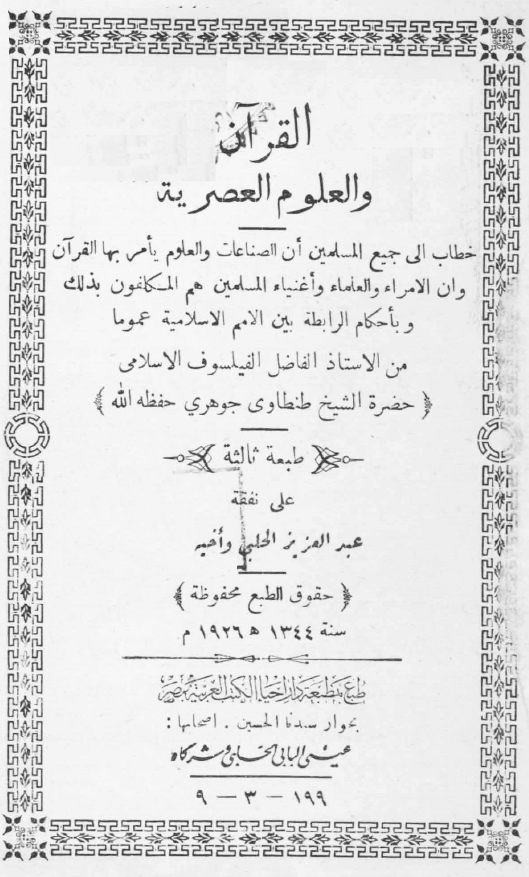 القرآن
والعلوم العصرية
خطاب الى جميع المسلمين أن الصناعات والعلوم يأمر بها القرآن
وان الامراء والعلماء وأغنياء المسلمين هم المكلفون بذلك
وبأحكام الرابطة بين الامم الاسلامية عموما
من الاستاذ الفاضل الفيلسوف الاسلامى
﴿ حضرة الشيخ طنطاوى جوهري حفظه الله ﴾
طبعة ثالثة
على نفقة
عبد العزيز الحلبي وأخيه
﴿ حقوق الطبع محفوظة ﴾
سنة ١٣٤٤ ه ١٩٢٦ م
طبع بمطبعة دار احياء الكتب العربية بمصر
بجوار سيدنا الحسين . اصحابها :
عيسى البابي الحلبي وشركاه
١٩٩ — ٣ — ٩